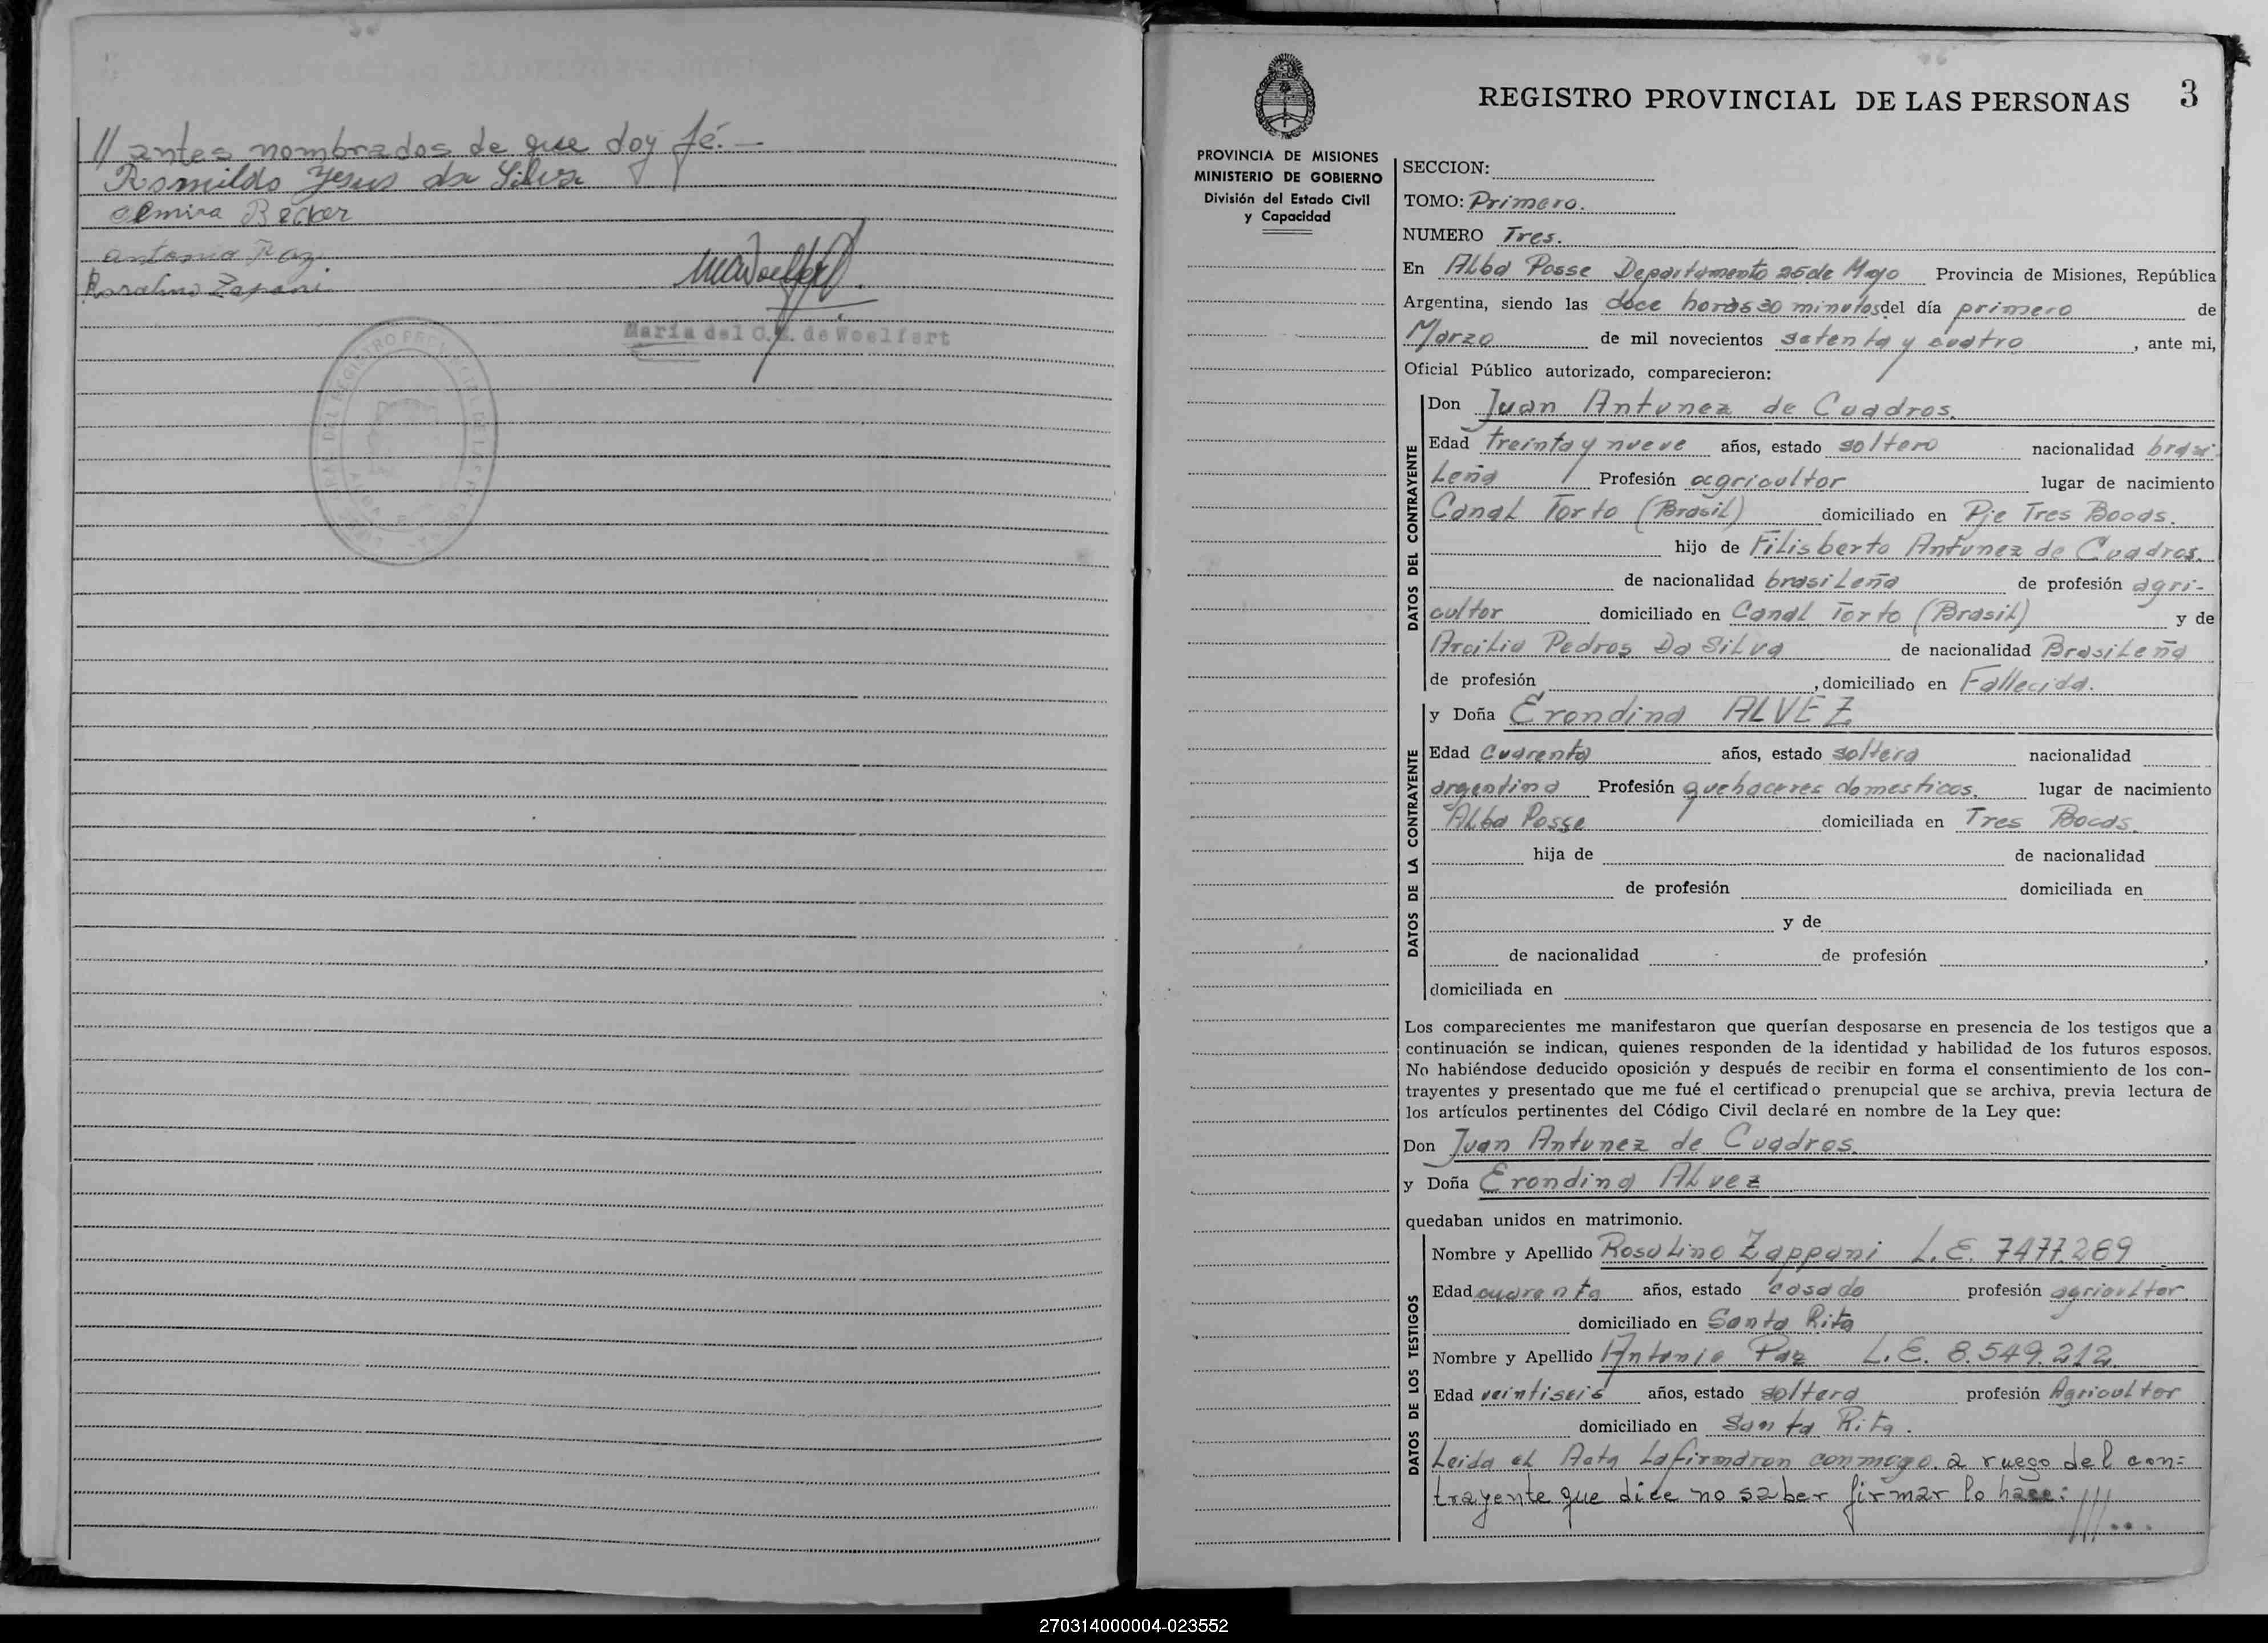 // antes nombrados de que doy fé.—
Romildo Jesus da Silva
Elmira Becker
Antonio Paz
Rosalino Zapani
María del C. de Woelfert
REGISTRO PROVINCIAL DE LAS PERSONAS 3
PROVINCIA DE MISIONES
MINISTERIO DE GOBIERNO
División del Estado Civil
y Capacidad
SECCION:
TOMO: Primero.
NUMERO Tres.
En Alba Posse Departamento 25 de Mayo Provincia de Misiones, República
Argentina, siendo las doce horas 30 minutos del día primero de
Marzo de mil novecientos setenta y cuatro, ante mi,
Oficial Público autorizado, comparecieron:
DATOS DEL CONTRAYENTE
Don Juan Antunez de Cuadros.
Edad treinta y nueve años, estado soltero nacionalidad brasi-
leña Profesión agricultor lugar de nacimiento
Canal Torto (Brasil) domiciliado en Pje Tres Bocas.
hijo de Filisberto Antunez de Cuadros.
de nacionalidad brasileña de profesión agri-
cultor domiciliado en Canal Torto (Brasil) y de
Arcilia Pedros Da Silva de nacionalidad Brasileña
de profesión , domiciliado en Fallecida.
DATOS DE LA CONTRAYENTE
y Doña Erondina ALVEZ
Edad Cuarenta años, estado soltera nacionalidad
argentina Profesión quehaceres domesticos. lugar de nacimiento
Alba Posse domiciliada en Tres Bocas.
hija de de nacionalidad
de profesión domiciliada en
y de
de nacionalidad de profesión ,
domiciliada en
Los comparecientes me manifestaron que querían desposarse en presencia de los testigos que a
continuación se indican, quienes responden de la identidad y habilidad de los futuros esposos.
No habiéndose deducido oposición y después de recibir en forma el consentimiento de los con-
trayentes y presentado que me fué el certificado prenupcial que se archiva, previa lectura de
los artículos pertinentes del Código Civil declaré en nombre de la Ley que:
Don Juan Antunez de Cuadros.
y Doña Erondina Alvez
quedaban unidos en matrimonio.
DATOS DE LOS TESTIGOS
Nombre y Apellido Rosalino Zappani L.E. 7477.269
Edad cuarenta años, estado casado profesión agricultor.
domiciliado en Santa Rita
Nombre y Apellido Antonio Paz L.E. 8.549.212.
Edad veintiseis años, estado soltera profesión Agricultor
domiciliado en Santa Rita.
Leida el Acta La firmaron conmigo. a ruego del con=
trayente que dice no saber firmar lo hace: ///...
270314000004-023552